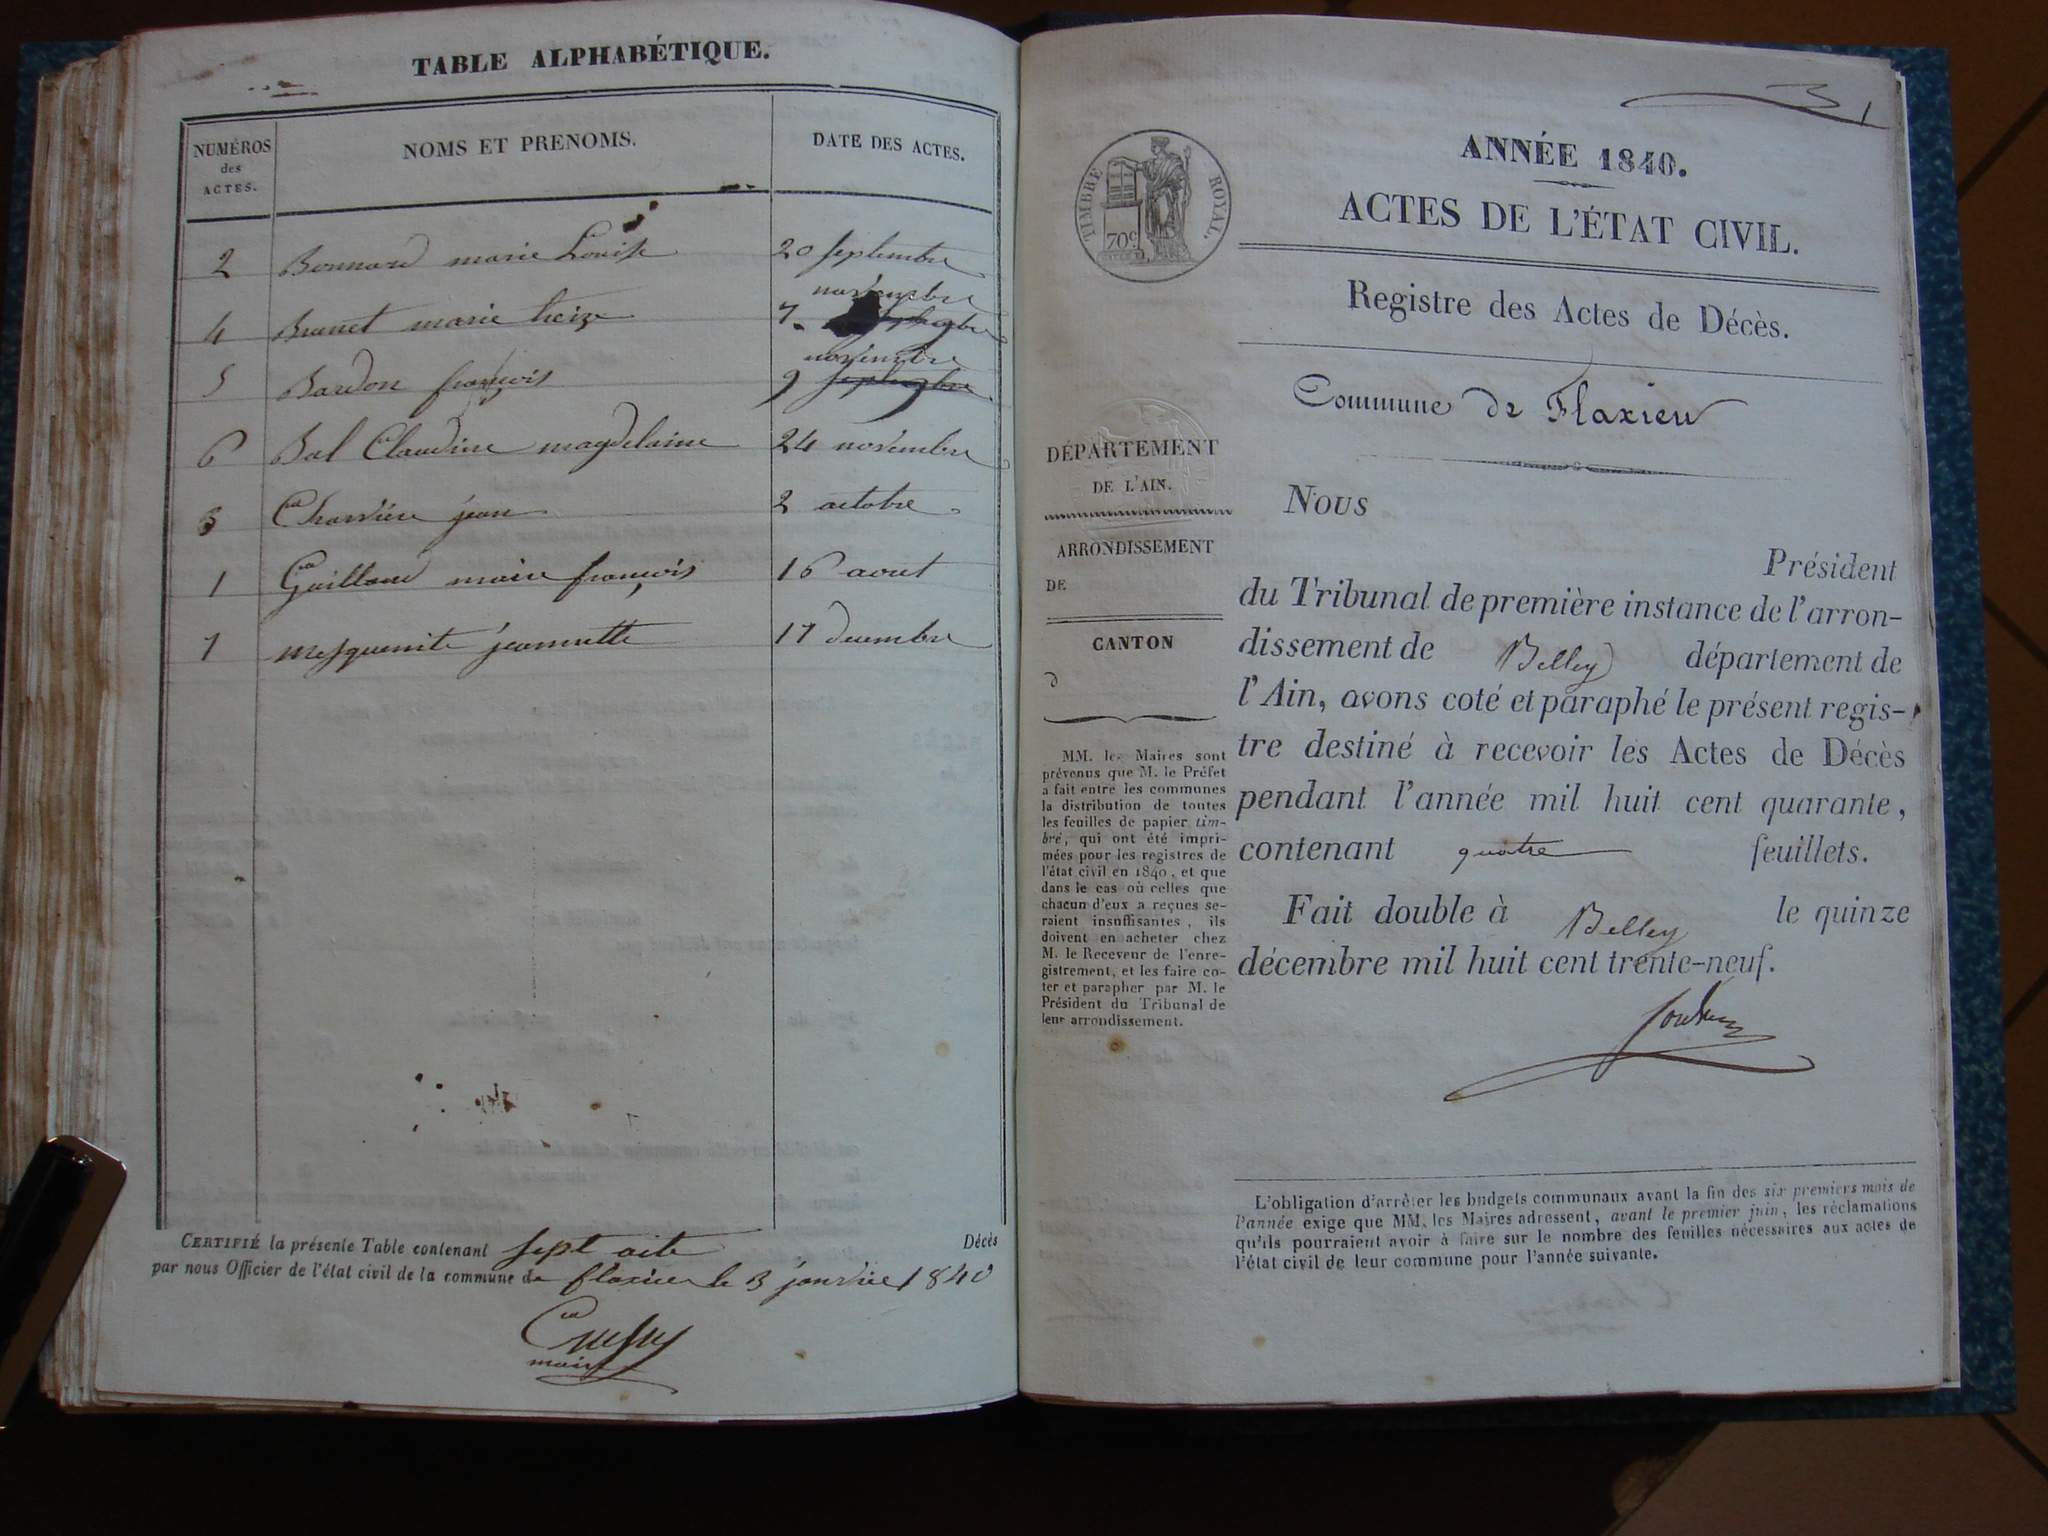 TABLE ALPHABÉTIQUE.
NUMÉROS des ACTES.
NOMS ET PRENOMS.
DATE DES ACTES.
2 Bonnard marie Louise 20 septembre
novembre
4 Brunet marie 7
novembre
5 Bardon françois 9 septembre
6 Bal Claudine magdelaine 24 novembre
3 Charvier jean 2 octobre
1 Guilland marie françois 16 aout
7 jeannette 17 decembre
CERTIFIÉ la présente Table contenant sept acte Décès
par nous Officier de l'état civil de la commune de flaxieu le 3 janvier 1840
maire
1
TIMBRE ROYAL.
70c
ANNÉE 1840.
ACTES DE L'ÉTAT CIVIL.
Registre des Actes de Décès.
Commune de Flaxieu
DÉPARTEMENT
DE L'AIN.
ARRONDISSEMENT
DE
CANTON
d
MM. les Maires sont
prévenus que M. le Préfet
a fait entre les communes
la distribution de toutes
les feuilles de papier tim-
bré, qui ont été impri-
mées pour les registres de
l'état civil en 1840, et que
dans le cas où celles que
chacun d'eux a reçues se-
raient insuffisantes, ils
doivent en acheter chez
M. le Receveur de l'enre-
gistrement, et les faire co-
ter et parapher par M. le
Président du Tribunal de
leur arrondissement.
Nous
Président
du Tribunal de première instance de l'arron-
dissement de Belley département de
l'Ain, avons coté et paraphé le présent regis-
tre destiné à recevoir les Actes de Décès
pendant l'année mil huit cent quarante,
contenant quatre feuillets.
Fait double à Belley le quinze
décembre mil huit cent trente-neuf.
L'obligation d'arrêter les budgets communaux avant la fin des six premiers mois de
l'année exige que MM. les Maires adressent, avant le premier juin, les réclamations
qu'ils pourraient avoir à faire sur le nombre des feuilles nécessaires aux actes de
l'état civil de leur commune pour l'année suivante.